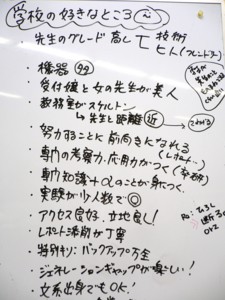 学校の好きなところ
・先生のグレード高し 技術
ヒト(フレンドリー)
・機器
・受付嬢と女の先生が美人
・教務室がスケルトン
→先生と距離近
・努力することに前向きになれる
(レポート…)
・専門の考察力、応用力がつく(卒研)
・専門知識+αのことが身につく
・実験が少人数で◎
・アクセス良好、立地良し!
・レポート添削が丁寧
・特別キソ:バックアップ万全
・ジェネレーションギャップが楽しい!
・文系出身でもOK!